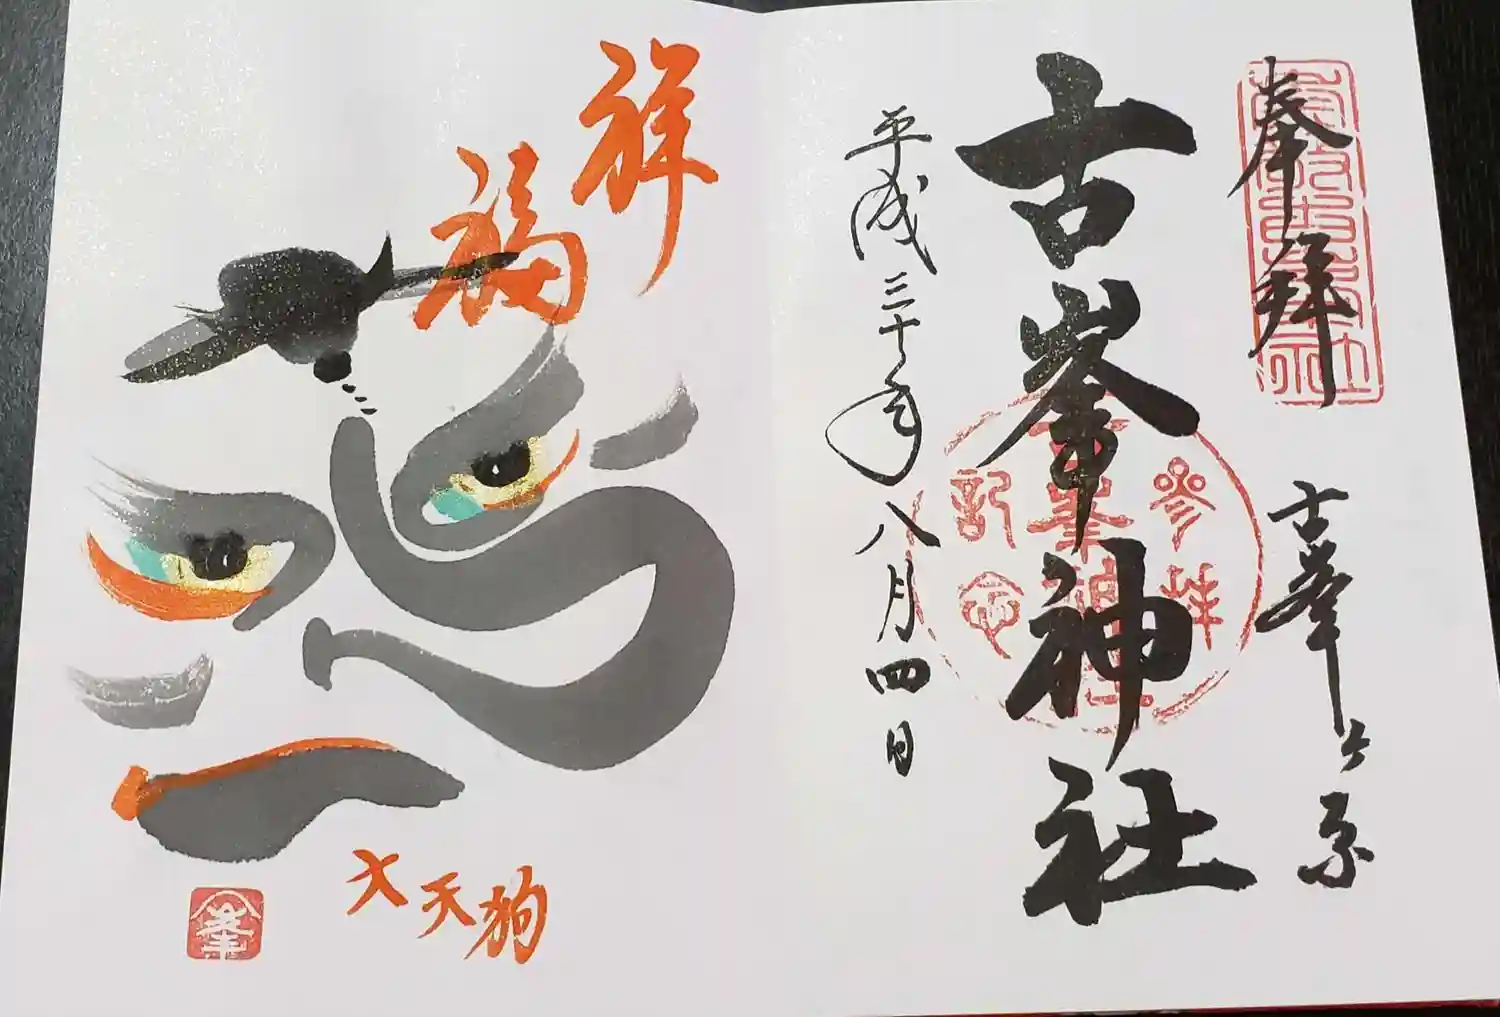 奉拝
古峯ヶ原
古峯神社
参拝
古峯神社
記念
平成三十年八月四日
祥福
大天狗
峯